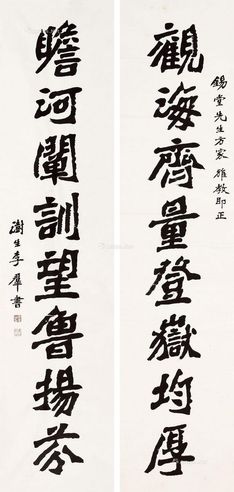 觀海齊量登嶽均厚
錫堂先生方家雅教即正
瞻河闡訓望魯揚芬
澍生李羣書